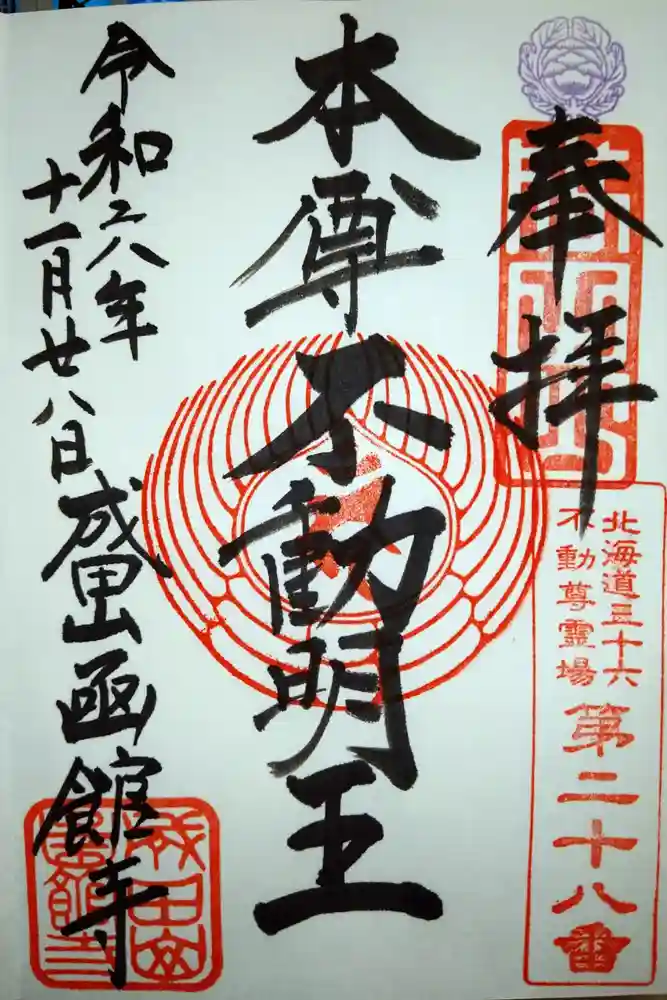 奉拝
北海道三十六
不動尊靈場
第二十八番
本尊不動明王
令和六年
十一月廿八日
成田山函館寺